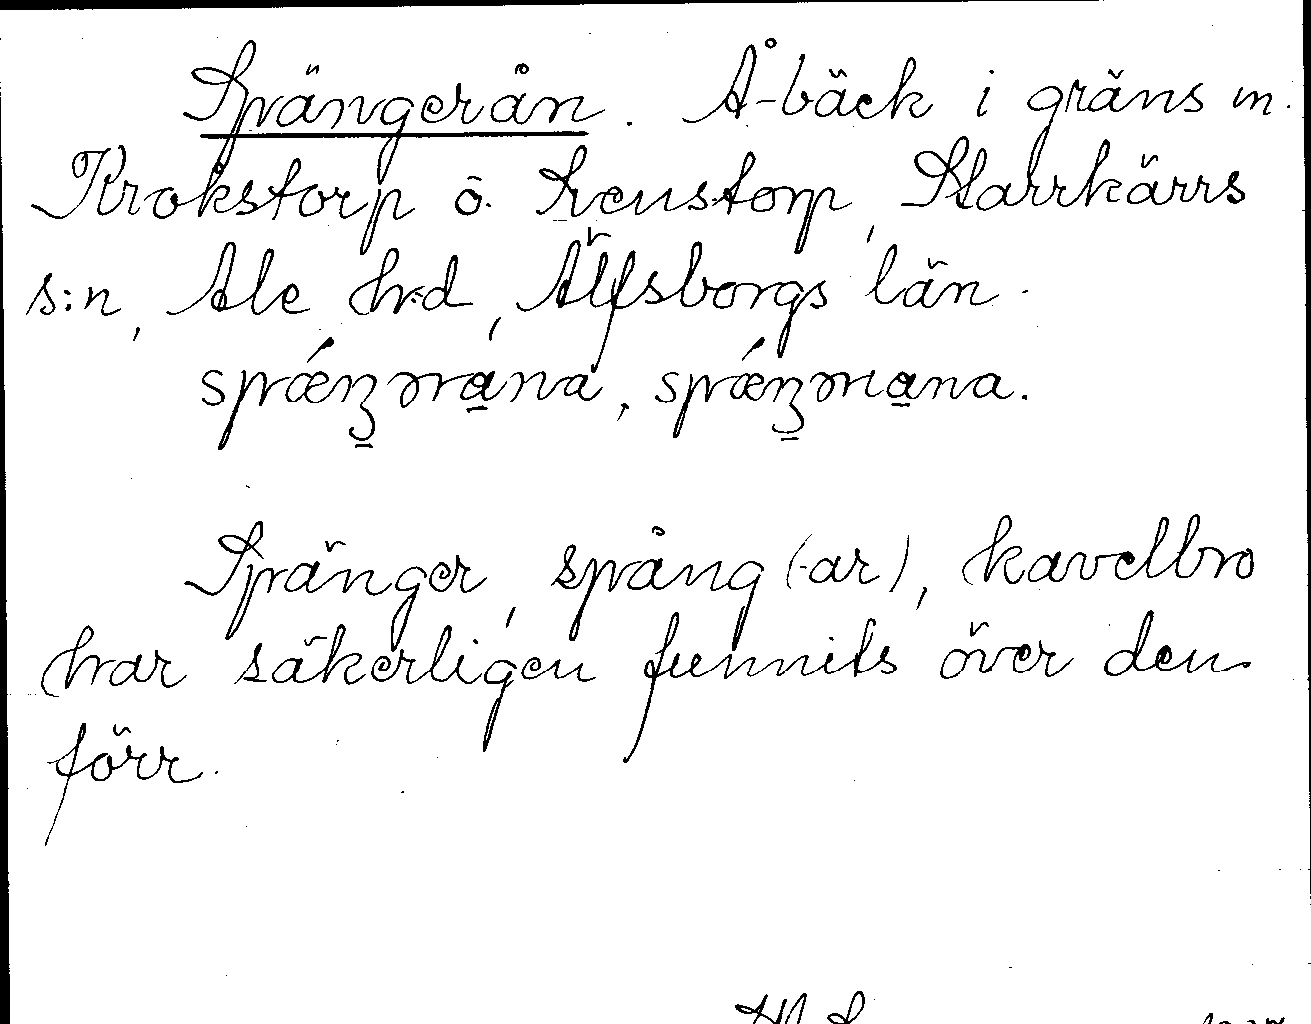 Spängerån. Å-bäck i gräns m.
Krokstorp o. torp, Starrkärrs
s:n, Ale h:d, Älfsborgs län.

Spänger, spång (-ar), kavelbro
har säkerligen funnits över den
förr.